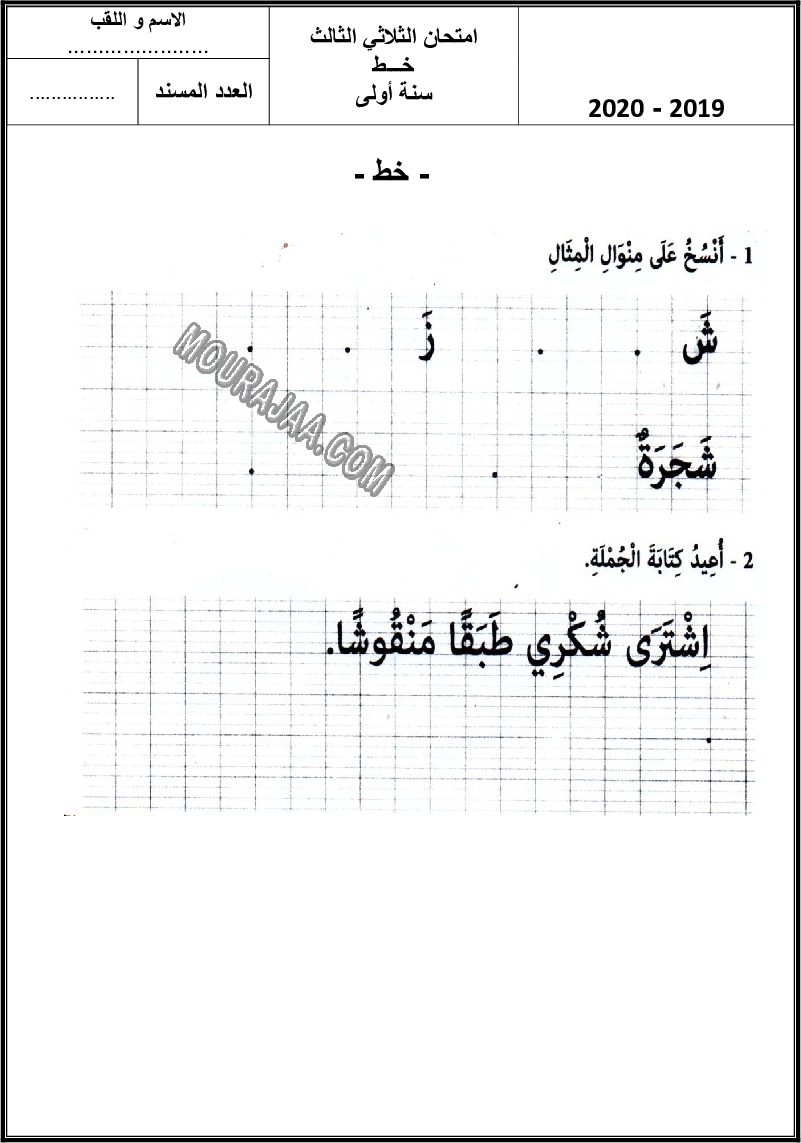 الاسم و اللقب
.....................
العدد المسند
................
امتحان الثلاثي الثالث
خـــط
سنة أولى
2019 - 2020
- خط -
1 - أَنْسُخُ عَلَى مِنْوَالِ الْمِثَالِ
شَ . . زَ . .
شَجَرَةٌ . .
MOURAJAA.COM
2 - أُعِيدُ كِتَابَةَ الْجُمْلَةِ.
اِشْتَرَى شُكْرِي طَبَقًا مَنْقُوشًا.
.